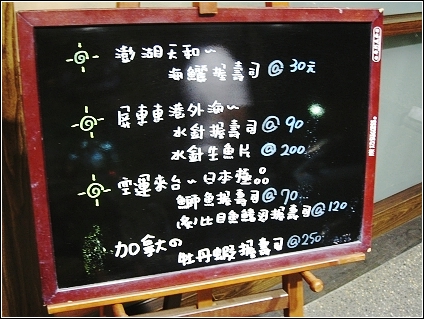 澎湖天和~
海鱺握壽司@30元
屏東東港外海~
水針握壽司@90
水針生魚片@200
空運來台~日本極品
鰤魚握壽司@70
比目魚鰭握壽司@120
加拿大の
牡丹蝦握壽司@250